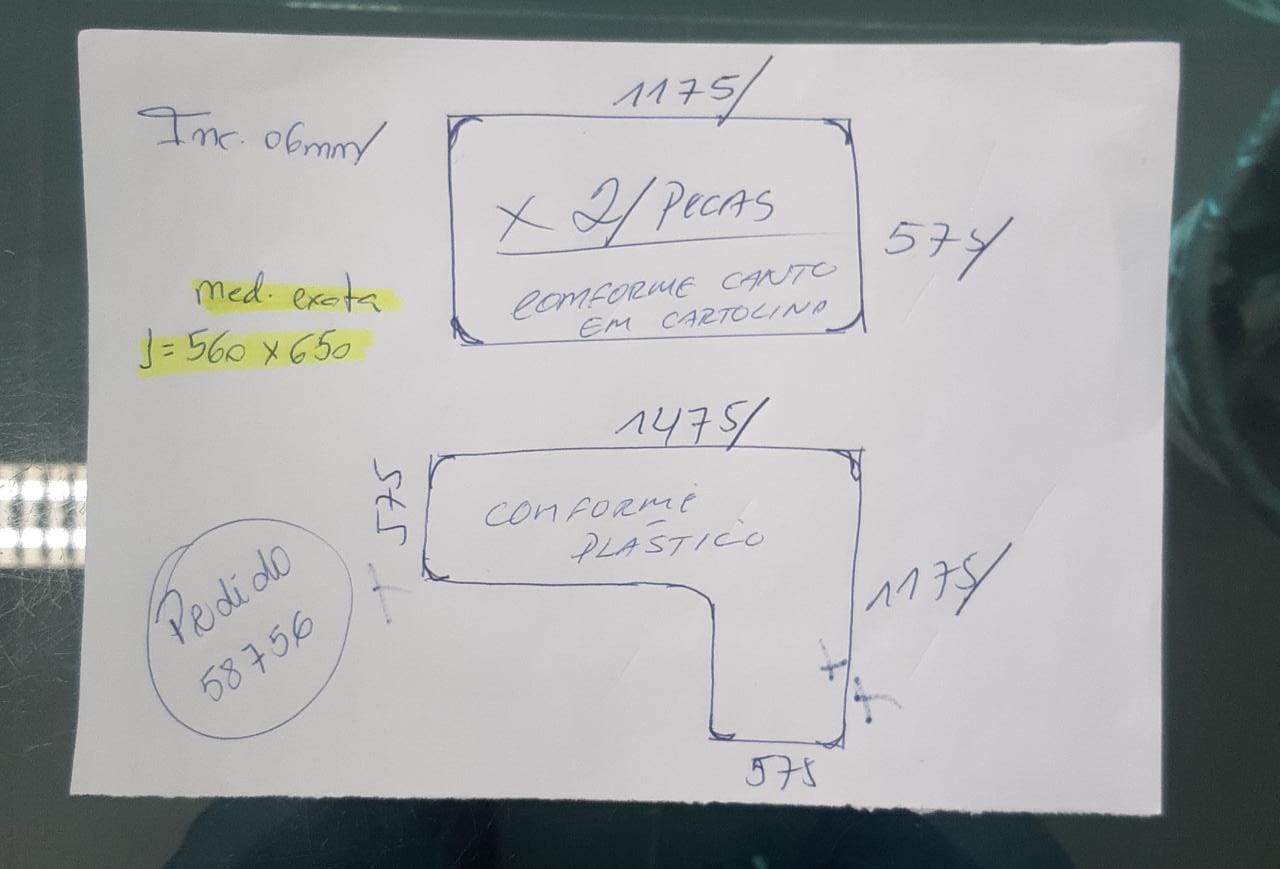 1175/
Inc. 06mm/
x 2/ PeCAS
575/
COMFORME CANTO
EM CARTOLINA
med. exata
J = 560 x 650
1475/
575
COMFORME
PLÁSTICO
1175/
Pedido
58756
575